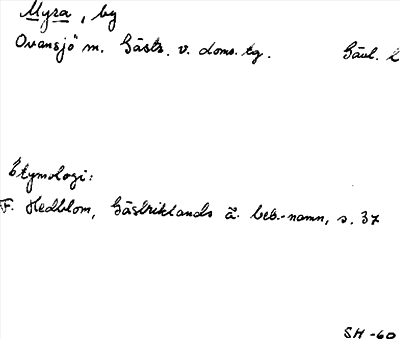 Myra, by
Ovansjö m. Gästr. v. doms. tg. Gävl. l
Etymologi:
F. Hedblom, Gästriklands ä. beb.-namn, s. 37
SH -60